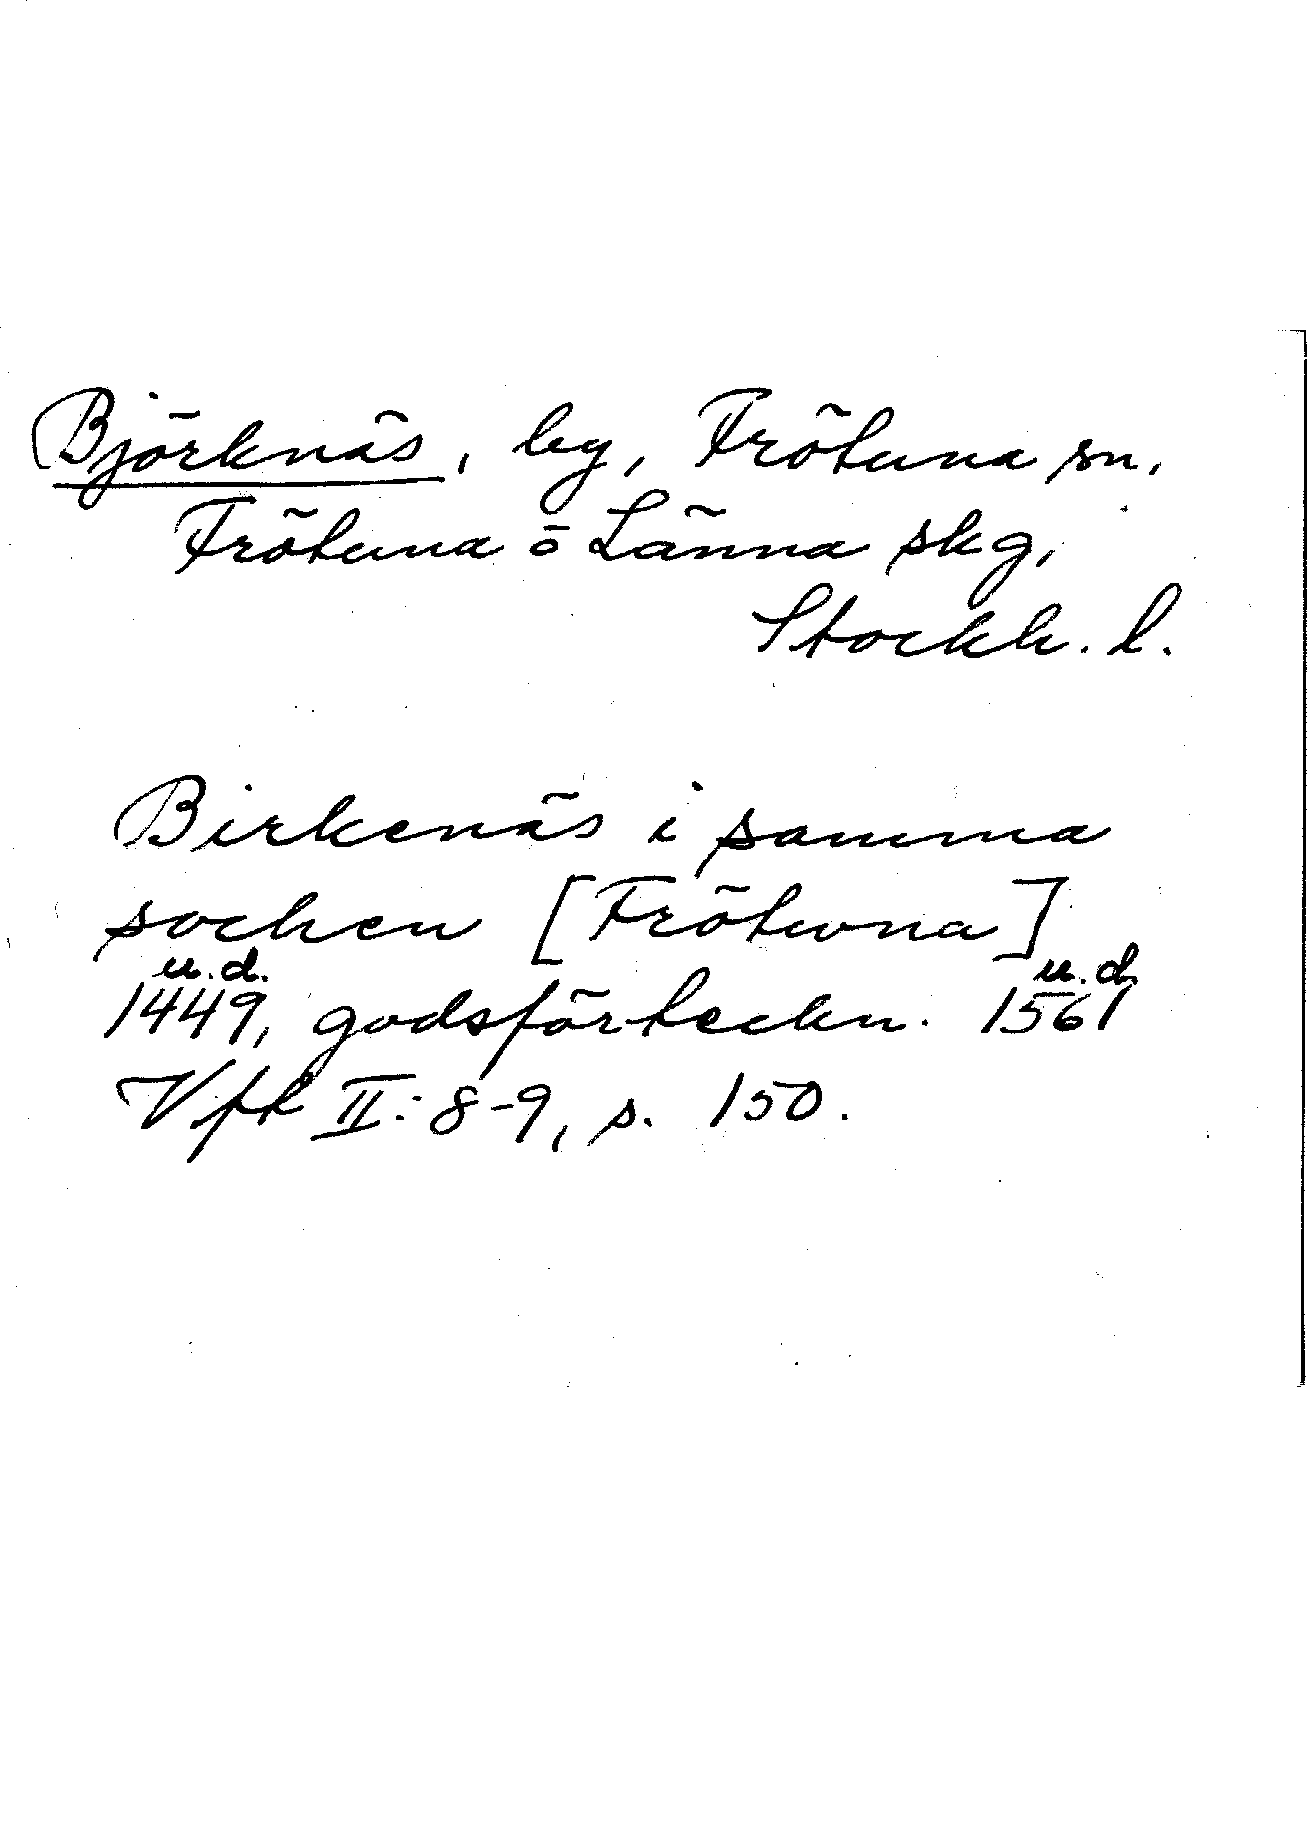 Björknäs, by, Frötuna sn,
Frötuna o Länna skg,
Stockh. l.
Birkenäs i samma
socken [Frötwna]
u.d. u.d.
1449, godsförteckn. 1561
Vfk II: 8-9, s. 150.